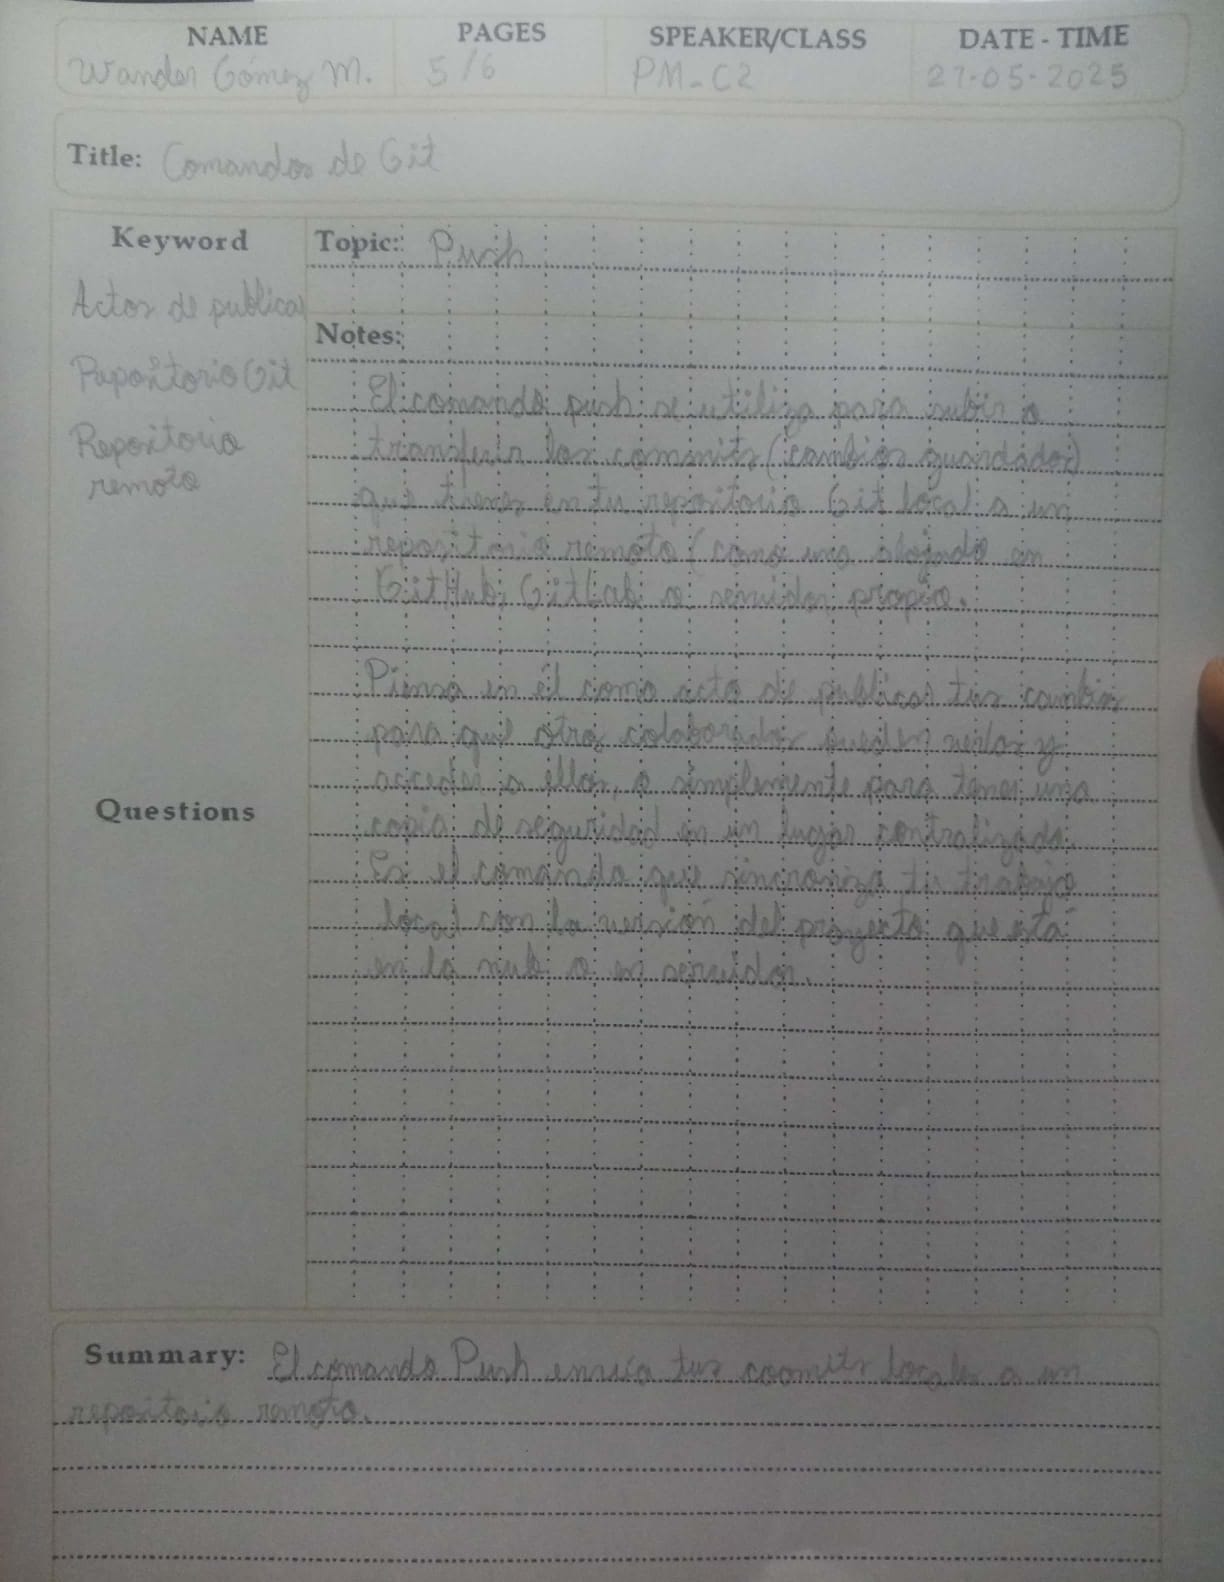 NAME PAGES SPEAKER/CLASS DATE - TIME
Wander Gómez M. 5/6 PM-C2 27-05-2025
Title: Comandos de Git
Keyword
Actos de publicar
Repositorio Git
Repositorio
remoto
Questions
Topic: Push
Notes:
El comando push se utiliza para subir o
transferir los commits (cambios guardados)
que tienes en tu repositorio Git local a un
repositorio remoto (como uno alojado en
GitHub, GitLab o servidor propio.
Piensa en él como acto de publicar tus cambios
para que otros colaboradores pueden verlos y
acceder a ellos, o simplemente para tener una
copia de seguridad en un lugar centralizado.
Es el comando que sincroniza tu trabajo
local con la versión del proyecto que está
en la nube o en servidor.
Summary: El comando Push envía tus coomits locales a un
repositorio remoto.